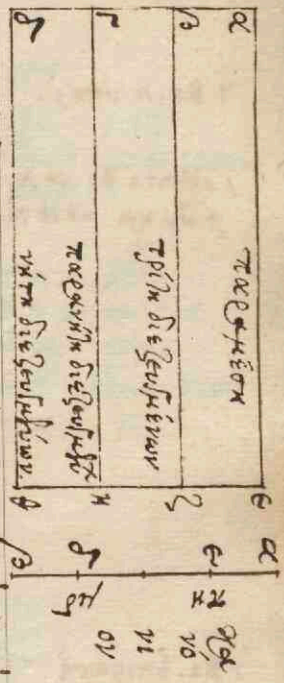 α
β
γ
δ
παραμέση
τρίτη διεζευγμένων
παρανήτη διεζευγμένων
νήτη διεζευγμένων
ε
ζ
η
θ
α
ε
δ
β
κα
νό
νι
ον